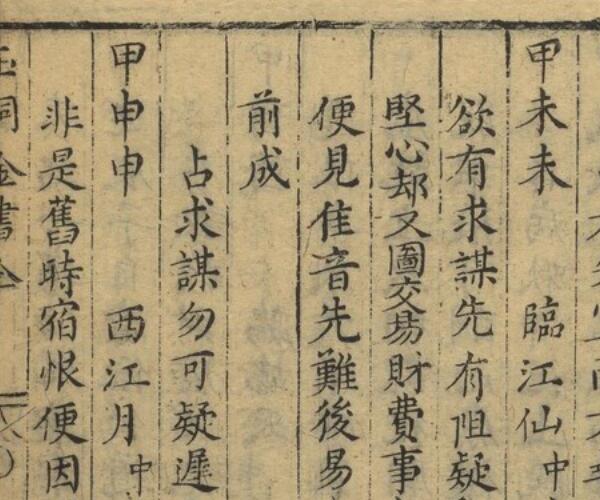 甲未未　臨江仙中
欲有求謀先有阻疑
堅心却又圖交易財費事
便見佳音先難後易
前成
占求謀勿可疑遲
甲申申　西江月中
非是舊時宿恨便因
玉洞金書全